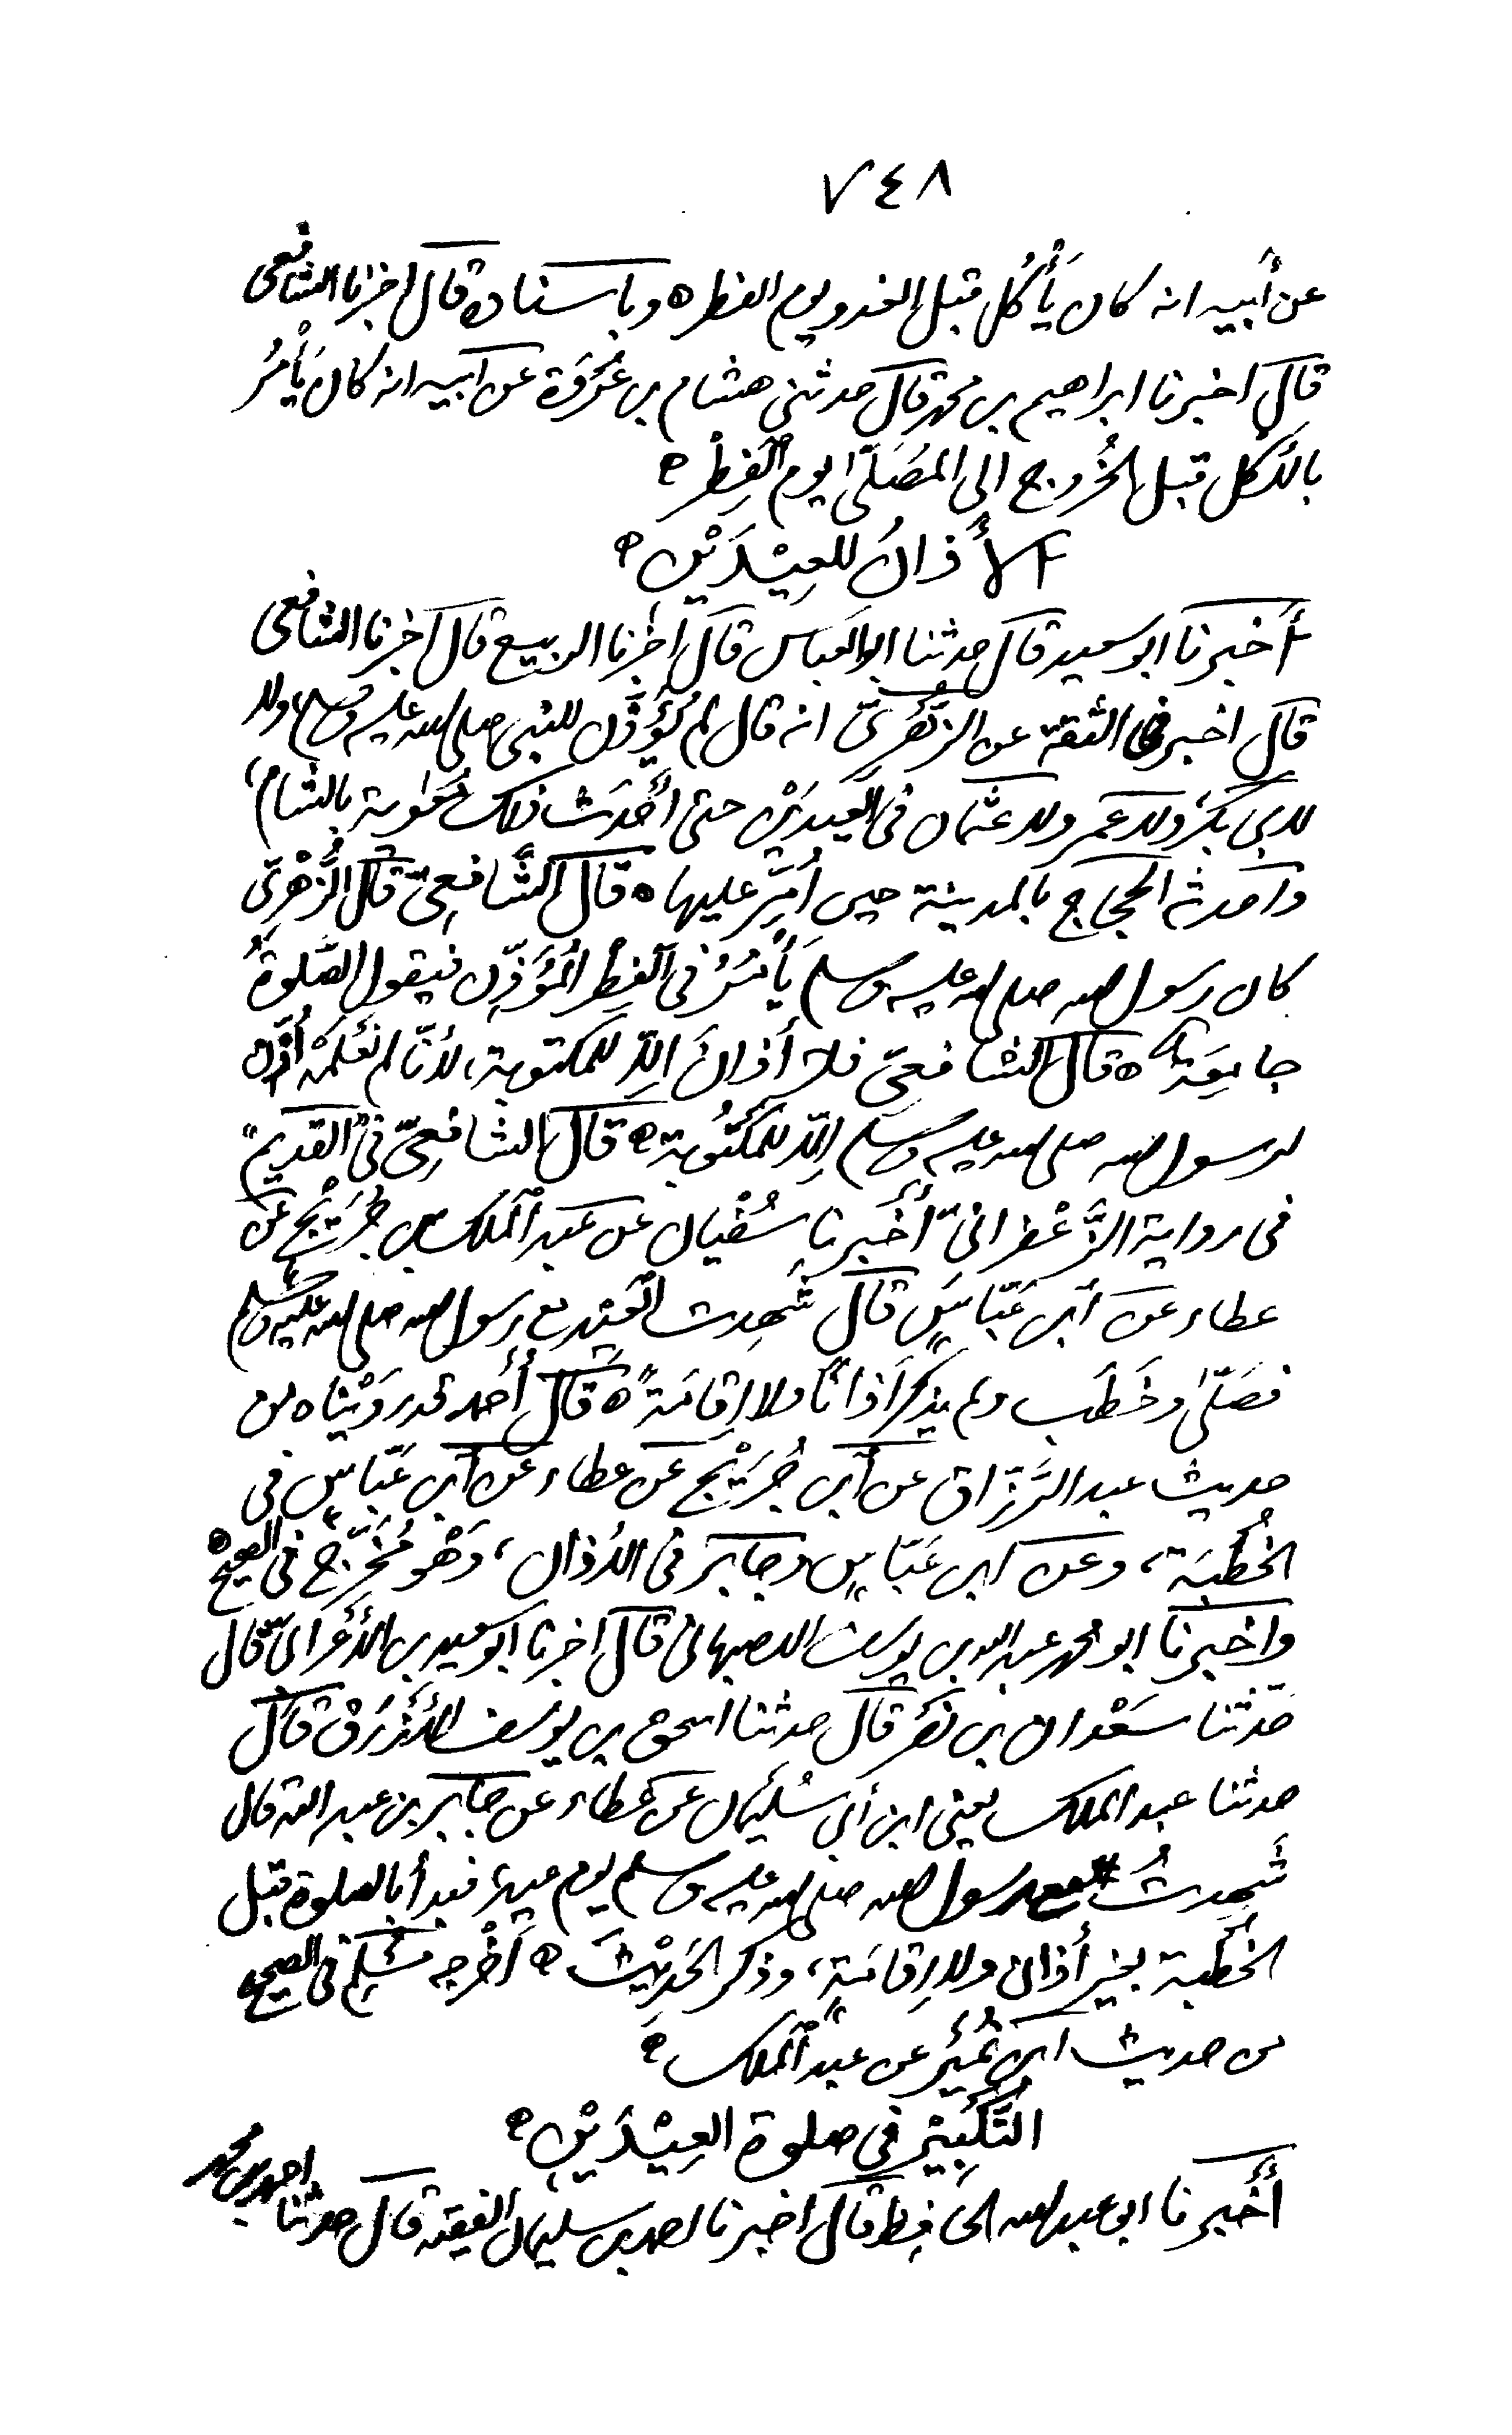 ٧٤٨
عن أبيه انه كان يَأْكُل قبل الغدو يوم الفطر ه وباسناده قال اخبرنا الشافعى
قال اخبرنا ابراهيم بن محمد قال حدثنى هشام بن عُرْوَة عن ابيه انه كان يَأْمُرُ
بالأكل قبل الخُروج الى المُصَلَّى يوم الفِطْر ه
الأَذانُ للعِيْدَيْن ه
أخبرنا ابو سعيد قال حدثنا ابو العباس قال أخبرنا الربيع قال اخبرنا الشافعى
قال اخبرنى الثقة عن الزُّهْرىّ انه قال لم يُؤَذَّن للنبى صلى الله عليه وسلم، ولا
لابى بكر ولا عمر ولا عثمان فى العِيدَيْن حتى أَحْدَثَ ذلك مُعٰوية بالشام،
واحدثه الحجاج بالمدينة حين أُمِّرَ عليها ه قال الشَّافِعِىّ قال الزُّهْرِىّ
كان رسول الله صلى الله عليه وسلم يَأْمُرُ فى الفِطْرِ المُؤَذِّن فيقول الصَّلوةُ
جامِعَة ه قال الشافعىّ فلا أذانَ إلاّ للمكتوبة، لأنّا لم نَعْلَمْه أُذِّن
لرسول الله صلى الله عليه وسلم إلاّ للمَكْتُوبة ه قال الشافِعِىّ فى القديم
فى رواية الزَّعْفرانىّ أَخْبرنا سُفْيان عن عبد الملك بن جُرَيْج عن
عطاء عن ابن عَبّاسٍ قال شَهِدت العِيْد مع رسول الله صلى الله عليه وسلم
فصَلّى وخَطَب ولم يذكر أذانًا ولا إقامَةً ه قال أحمد قد رَوَيْناه من
حديث عبد الرَّزّاق عن ابن جُرَيْج عن عطاء عن ابن عَبّاسٍ فى
الخُطْبَة، وعن ابن عَبّاسٍ وجابر فى الأذان، وَهْوَ مُخَرَّج فى الصحيح ه
واخبرنا ابو محمد عبد الله بن يوسف الاصبهانى قال اخبرنا ابو سعيد بن الأعْرابىّ قال
حَدّثنا سَعْدان بن نَصْر قال حدثنا اسحق بن يوسف الأَزْرَق قال
حدثنا عبد الملك يعنى ابن أبى سُلَيْمان عن عطاء عن جابر بن عبد الله قال
شَهِدتُ مع رسول الله صلى الله عليه وسلم يوم عيد، فبدأ بالصلوة قبل
الخُطْبة بغير أذان ولا إقامَةٍ، وذكر الحَدِيْثَ ه أَخْرجه مُسْلِم فى الصحيح
من حديث ابن نُمَيْر عن عبد الملك ه
التَّكْبِيْر فى صلوة العِيْدَيْن ه
أَخْبرنا ابو عبد الله الحافِظ قال اخبرنا احمد بن سليمان الفقيه قال حدثنا احمد بن محمد